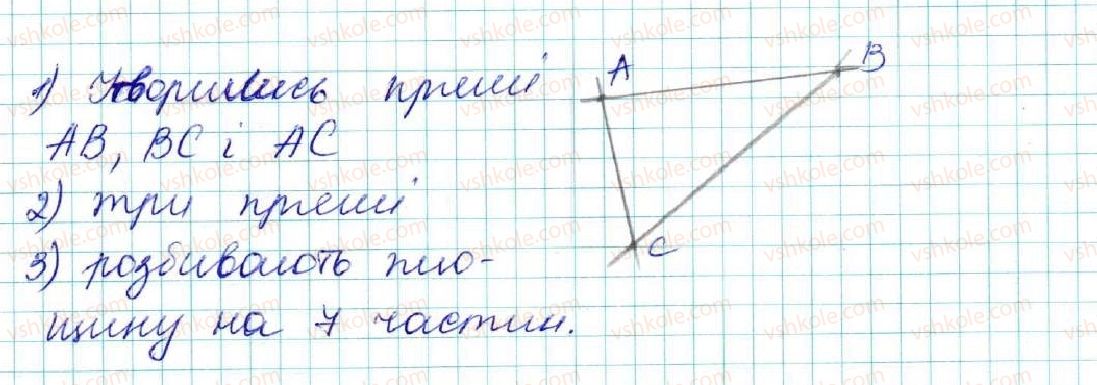 1) Утворились прямі
AB, BC і AC
2) три прямі
3) розбивають пло-
щину на 7 частин.
A
B
C
vshkole.com